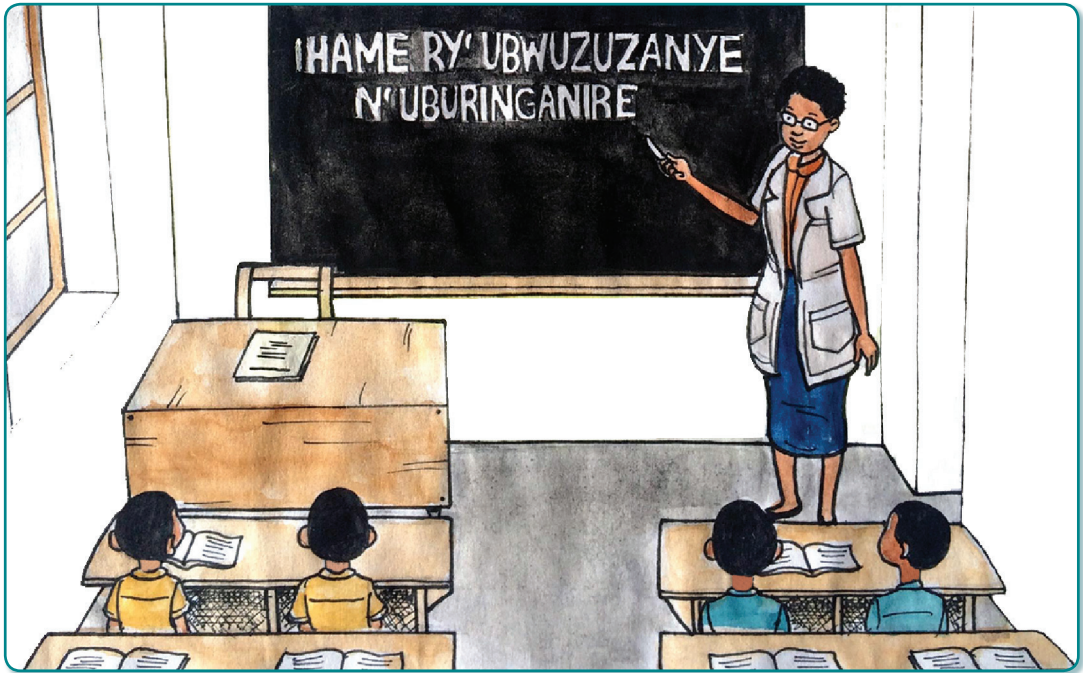 IHAME RY' UBWUZUZANYE
N' UBURINGANIRE